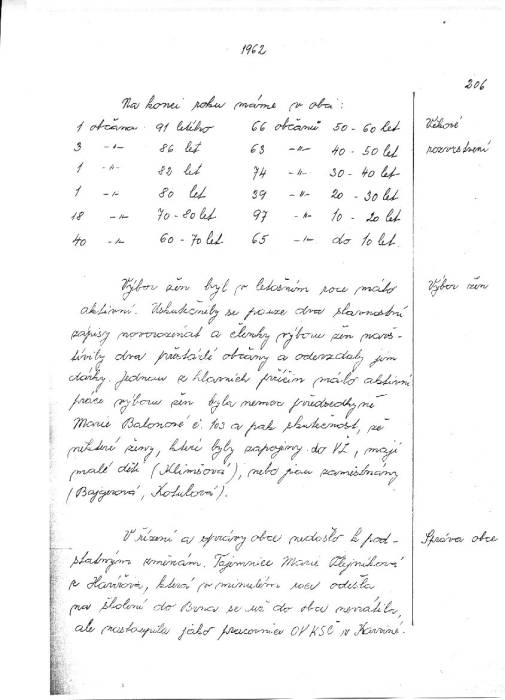 1962
206
Na konci roku máme v obci:
1 občana 91 letého 66 občanů 50-60 let
Věkové
3 -"- 86 let 63 -"- 40-50 let
rozvrstvení
1 -"- 82 let 74 -"- 30-40 let
1 -"- 80 let 39 -"- 20-30 let
18 -"- 70-80 let 97 -"- 10-20 let
40 -"- 60-70 let 65 -"- do 10 let.
Výbor žen byl v letošním roce málo
Výbor žen
aktivní. Uskutečnily se pouze dva slavnostní
zápisy novorozeňat a členky výboru žen navš-
tívily dva přestárlé občany a odevzdaly jim
dárky. Jednou z hlavních příčin málo aktivní
práce výboru žen byla nemoc předsedkyně
Marie Balonové č. 103 a pak skutečnost, že
některé ženy, které byly zapojeny do VŽ, mají
malé děti (Klimšová), nebo jsou zaměstnány
(Bajgerová, Kotulová).
V řízení a správy obce nedošlo k pod-
Správa obce
statným změnám. Tajemnice Marie
z Havířova, která v minulém roce odešla
na školení do Brna se už do obce nevrátila,
ale nastoupila jako pracovnice OV KSČ v Karviné.